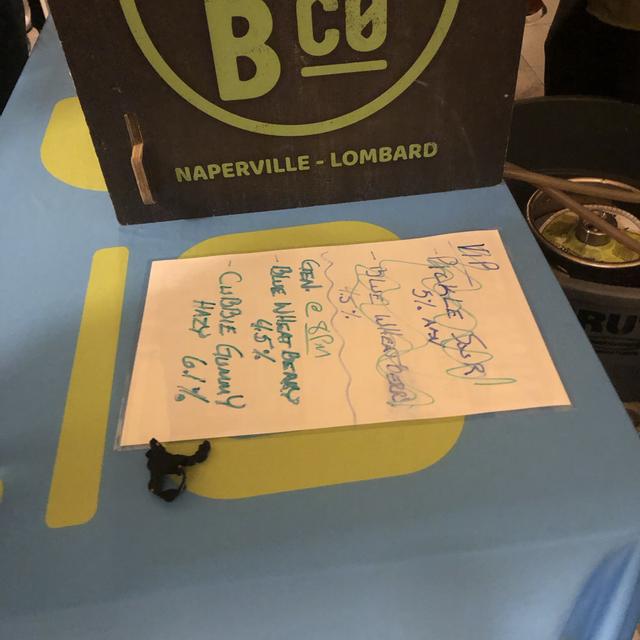 B CO
NAPERVILLE - LOMBARD
VIP
- SOUR
5% ABV
- BLUE WHEAT
GEN @ 8PM
- BLUE WHEAT BERRY
4.5%
- CUBBIE GUMMY
HAZY 6.1%
RU